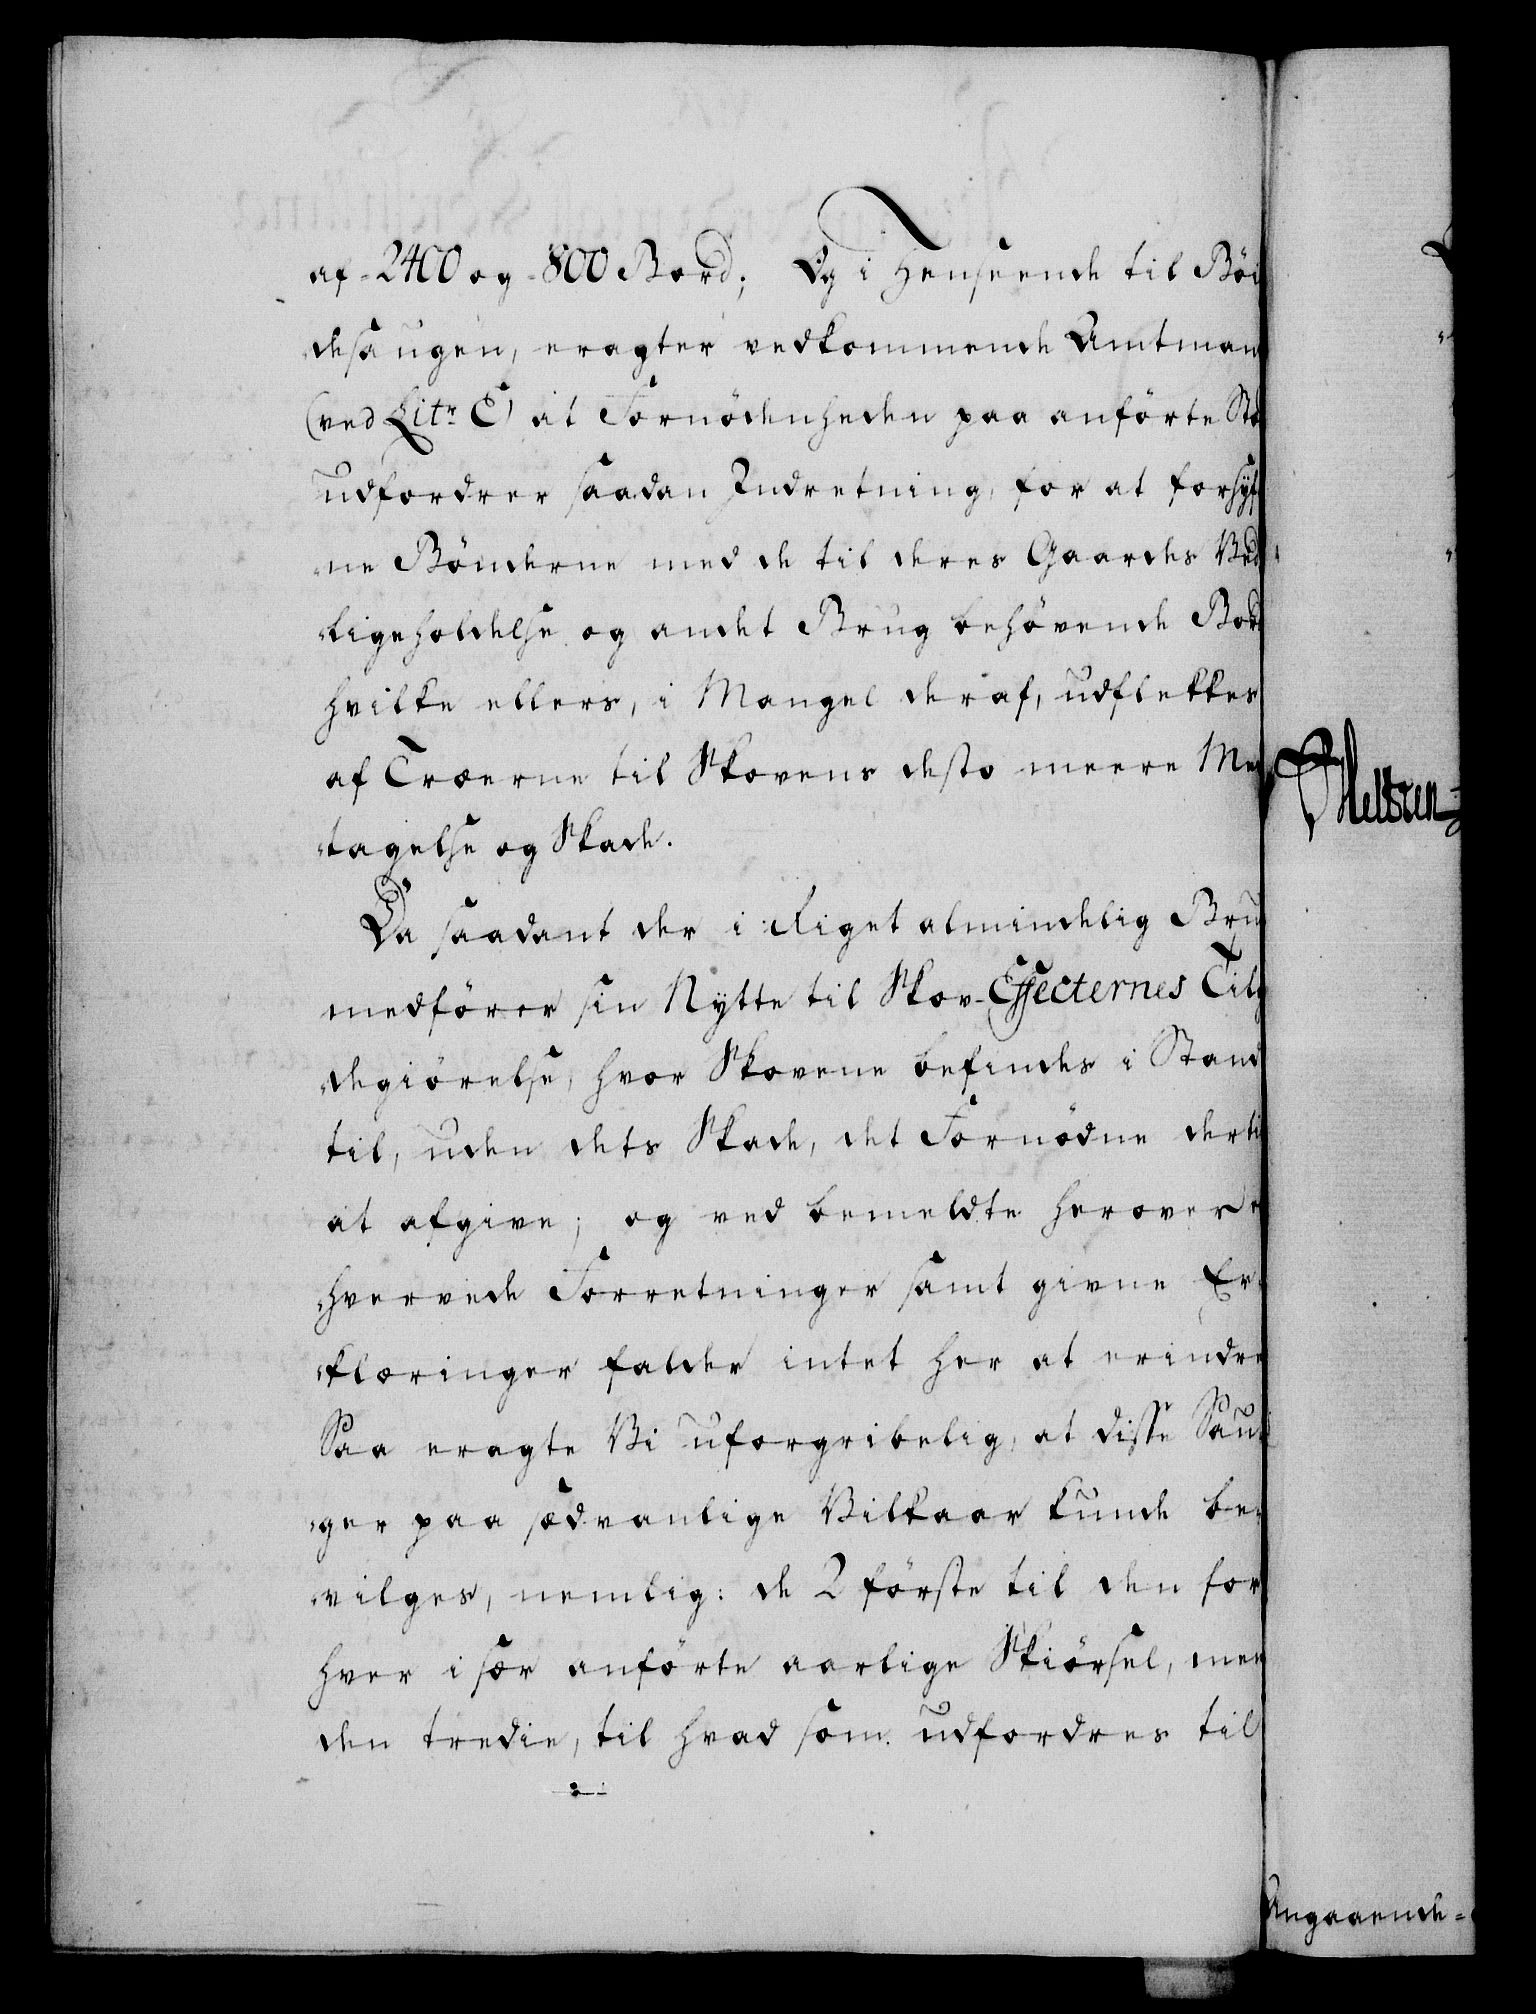 af - 2400 og - 800 Bord; Og i Henseende til Böi
desaugen, eragter vedkommende Amtman
(ved Litr. C) at Fornödenheden paa anförte Sted
udfordrer saadan Indretning, for at forsÿ
ne Bönderne med de til deres Gaardes Ved
ligeholdelse og andet Brug behövende Bord
hvilke ellers, i Mangel deraf, udflekkes
af Træerne til Skovens desto meere Med
tagelse og Skade.
Da saadant der i Riget almindelig Brug
medförer sin Nÿtte til Skov-Effecternes Til
degiörelse, hvor Skovene befindes i Stand
til, uden dets Skade, det Fornödne dertil
at afgive; og ved bemeldte herover
hvervede Forretninger samt givne Er-
klæringer falder intet her at erindre
Saa eragte Vi uforgribelig, at disse Sau
ger paa sædvanlige Vilkaar kunde be-
vilges, nemlig: de 2 förste til den for
hver i sær anförte aarlige Skiörsel, men
den tredie, til hvad som udfordres til
Angaaende=